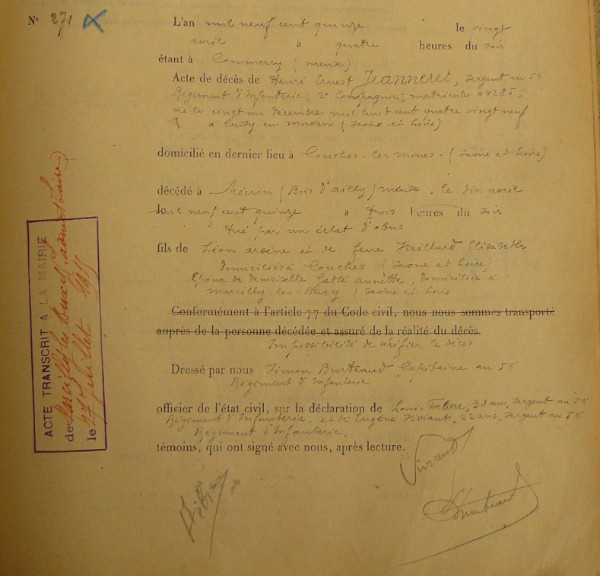 N° 271
L'an mil neuf cent quinze le vingt
avril à quatre heures du soir
étant à Commercy (Meuse)
Acte de décès de Henri Ernest Jeanneret, sergent au 56
Régiment d'Infanterie, 2e Compagnie, matricule 04285,
né le vingt un décembre mil huit cent quatre vingt neuf
à Cussy en Morvan (Saône et Loire)
domicilié en dernier lieu à Couches-les-mines (Saône et Loire)
décédé à Mécrin (Bois d'ailly) meuse, le dix avril
mil neuf cent quinze à trois heures du soir
tué par un éclat d'obus
fils de Léon arsène et de feue Elisabeth
domiciliés à Couches (Saône et Loire)
Epoux de demoiselle annette, domiciliée à
(Saône et Loire
Conformément à l'article 77 du Code civil, nous nous sommes transporté
auprès de la personne décédée et assuré de la réalité du décès.
Impossibilité de vérifier le décès
Dressé par nous Simon Burteaud Capitaine au 56
Régiment d'Infanterie
officier de l'état civil, sur la déclaration de Louis ans, sergent au 56
Régiment d'Infanterie, et de Eugène ans, sergent au 56
Régiment d'Infanterie.
témoins, qui ont signé avec nous, après lecture.
ACTE TRANSCRIT A LA MAIRIE
de
le 17 juillet 1915